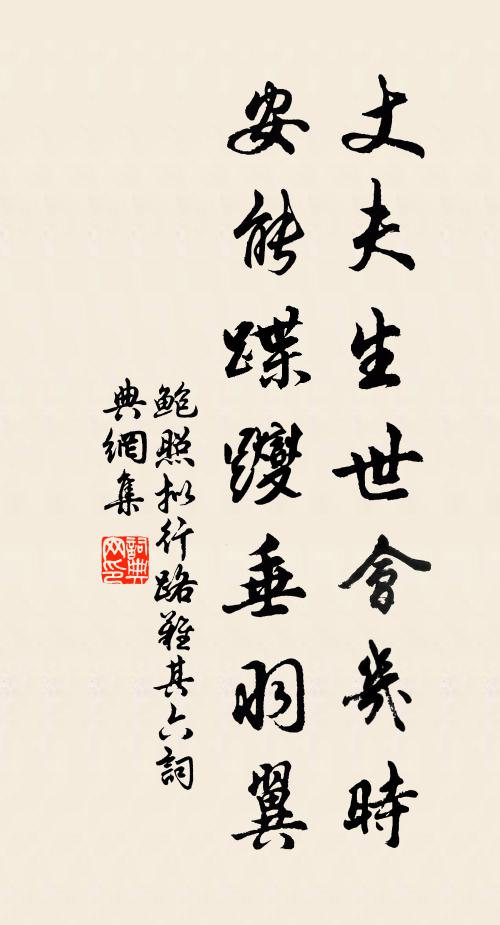 丈夫生世會幾時
安能蹀躞垂羽翼
鮑照拟行路難其六詞
典網集
詞典
网印